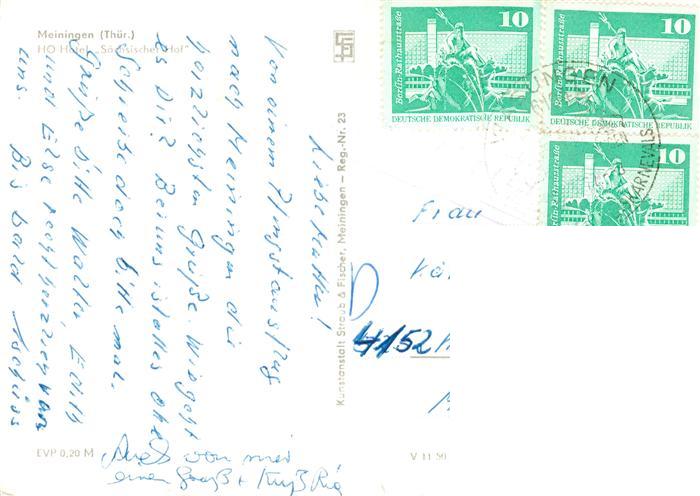 Meiningen (Thür.)
HO Hotel „Sächsischer Hof"
Von einem Pfingstausflug
nach Meiningen die
herzlichsten Grüße. Wie geht
es Dir? Bei uns ist alles okay
Schreibe doch bitte mal.
Grüße bitte Walter, Edith
und Else recht herzlich von
uns. Bis bald Tschüss
Auch von mir
einen Gruß + Kuß Ria
EVP 0,20 M
Kunstanstalt Straub & Fischer, Meiningen – Reg.-Nr. 23
V 11 50
10
Berlin-Rathausstraße
DEUTSCHE DEMOKRATISCHE REPUBLIK
10
Berlin-Rathausstraße
DEUTSCHE DEMOKRATISCHE REPUBLIK
10
Berlin-Rathausstraße
KARNEVALS
Frau
4152